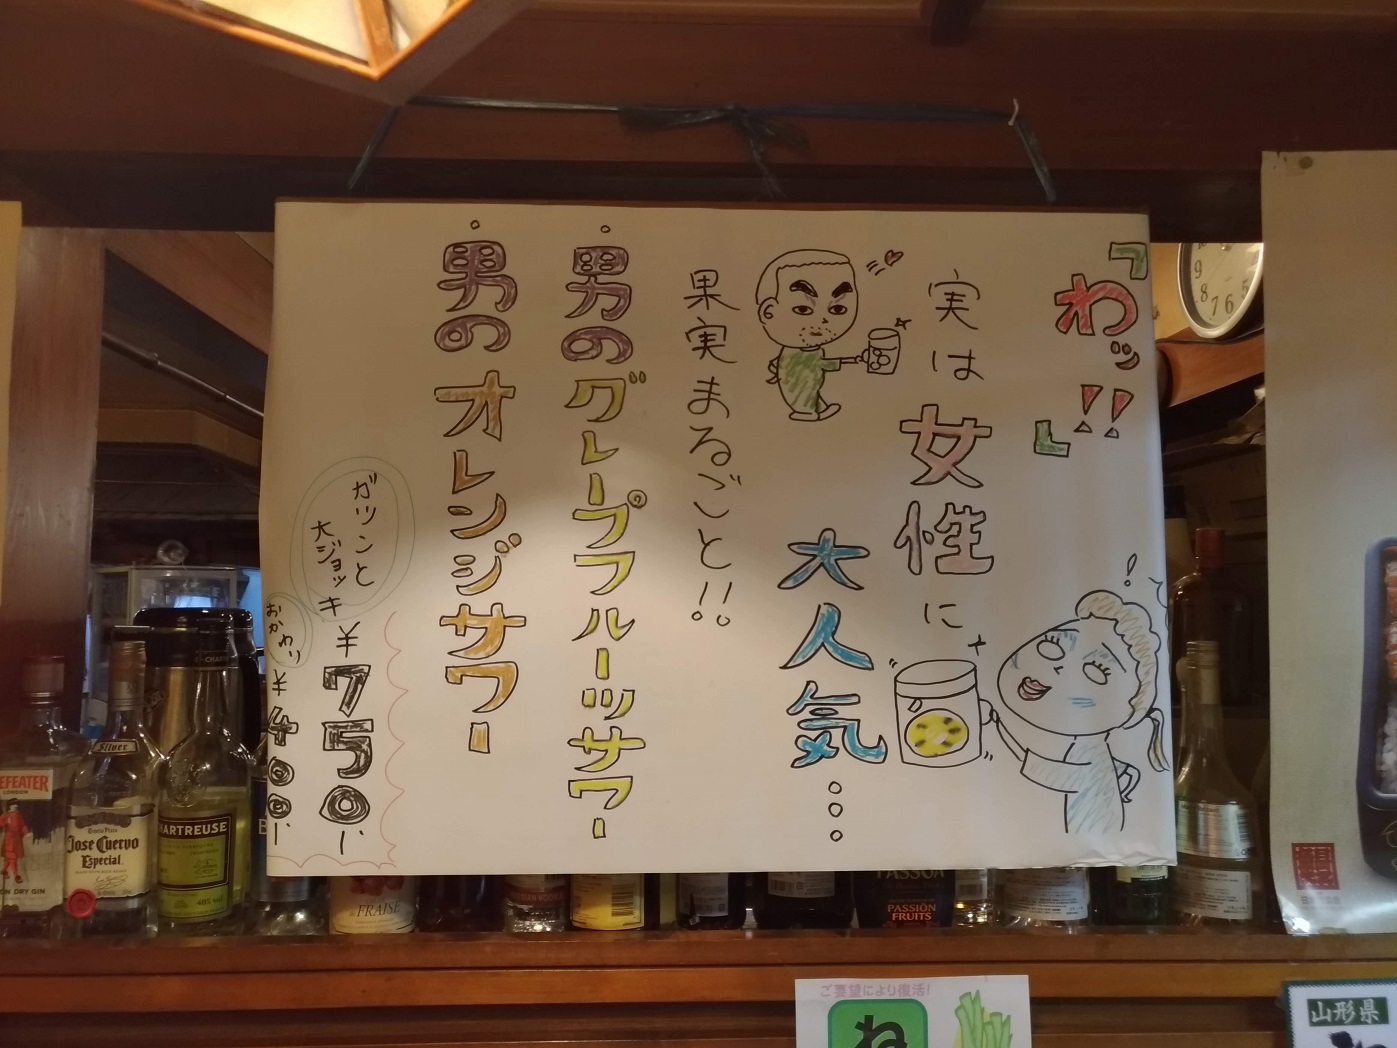 『わッ!!』
実は女性に
大人気…
果実まるごと!!
・男のグレープフルーツサワー
・男のオレンジサワー
ガツンと
大ジョッキ ¥750-
おかわり ¥400-
BEEFEATER
LONDON
LONDON DRY GIN
Silver
Jose Cuervo
Especial
CHARTREUSE
FRAISE
PASSOA
PASSION
FRUITS
9
8
7
6
5
ご要望により復活!
ね
山形県